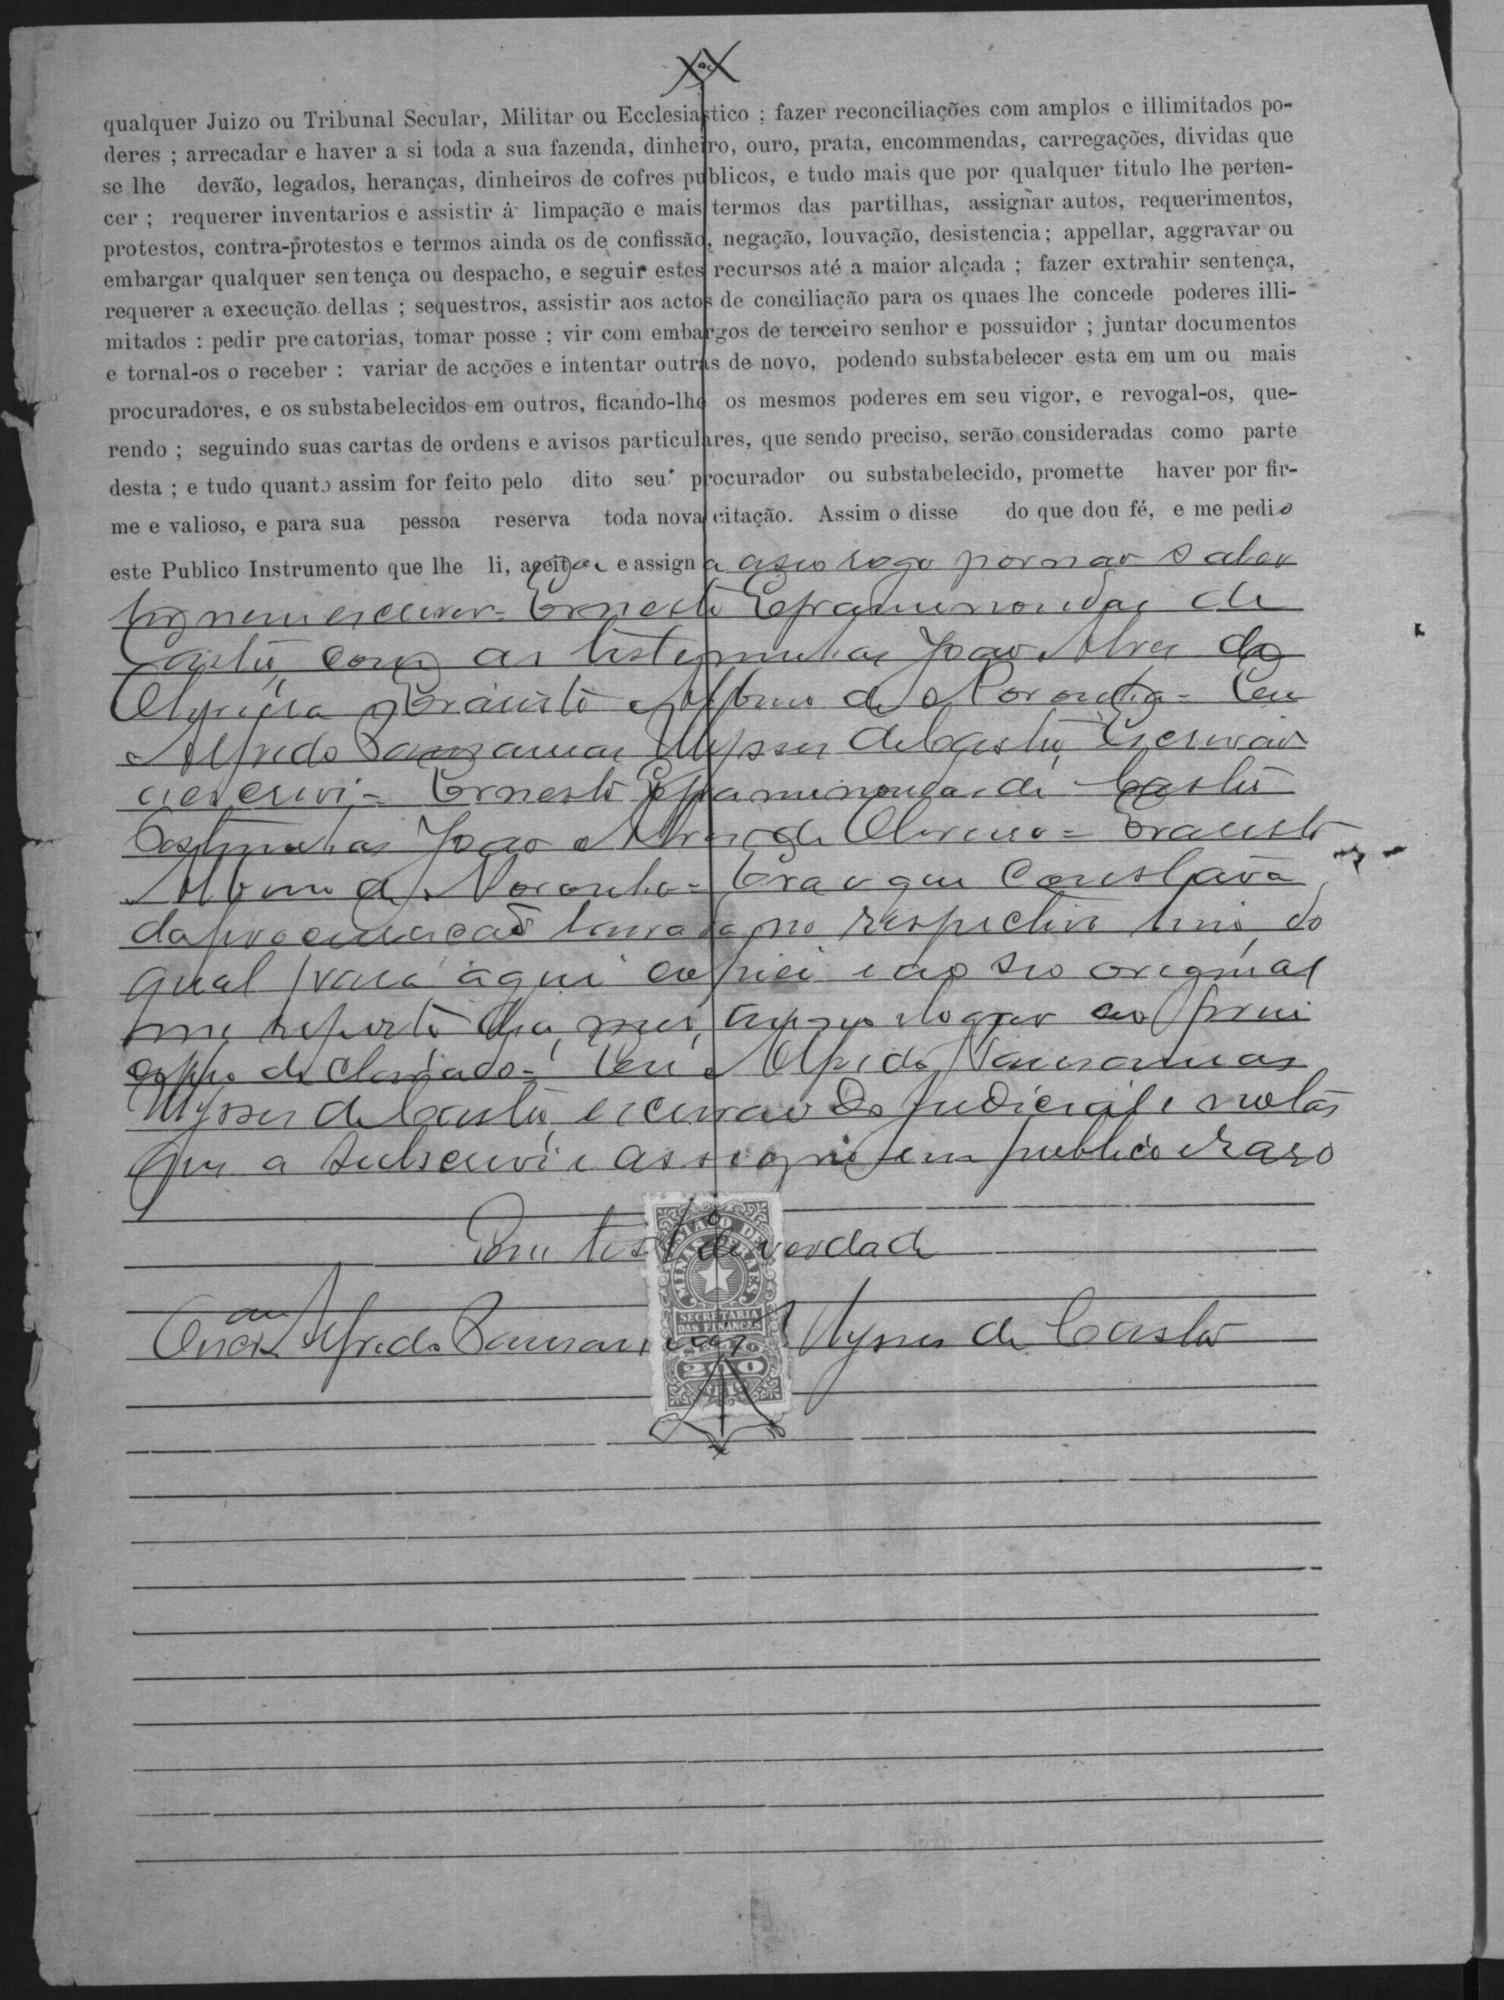 qualquer Juizo ou Tribunal Secular, Militar ou Ecclesiastico ; fazer reconciliações com amplos e illimitados po-
deres ; arrecadar e haver a si toda a sua fazenda, dinheiro, ouro, prata, encommendas, carregações, dividas que
se lhe devão, legados, heranças, dinheiros de cofres publicos, e tudo mais que por qualquer titulo lhe perten-
cer ; requerer inventarios e assistir á limpação e mais termos das partilhas, assignar autos, requerimentos,
protestos, contra-protestos e termos ainda os de confissão, negação, louvação, desistencia; appellar, aggravar ou
embargar qualquer sentença ou despacho, e seguir estes recursos até a maior alçada ; fazer extrahir sentença,
requerer a execução dellas ; sequestros, assistir aos actos de conciliação para os quaes lhe concede poderes illi-
mitados : pedir precatorias, tomar posse ; vir com embargos de terceiro senhor e possuidor ; juntar documentos
e tornal-os o receber : variar de acções e intentar outras de novo, podendo substabelecer esta em um ou mais
procuradores, e os substabelecidos em outros, ficando-lhe os mesmos poderes em seu vigor, e revogal-os, que-
rendo ; seguindo suas cartas de ordens e avisos particulares, que sendo preciso, serão consideradas como parte
desta ; e tudo quanto assim for feito pelo dito seu procurador ou substabelecido, promette haver por fir-
me e valioso, e para sua pessoa reserva toda nova citação. Assim o disse do que dou fé, e me pedio
este Publico Instrumento que lhe li, aceitou e assigna a seo rogo por nao saber
ler nem escrever - Ernesto Epaminondas de
Castro, com as testemunhas João Alves de
Oliveira e Evaristo Albino de Noronha = Eu
Alfredo Ulysses de Castro, Escrivão
o escrevi - Ernesto Epaminondas de Castro
Testemunhas João Alves de Oliveira = Evaristo
Albino de Noronha = Era o que constava
da procuração lavrada no respectivo livro, do
qual para aqui copiei e ao seo original
me reporto dia, mez, anno e logar ao princi
pio declarado = Eu Alfredo
Ulysses de Castro, escrivão do Judicial e notas
que a subscrevi e assigno em publico e raso
Em test de verdade
Alfredo Ulysses de Castro
ESTADO DE
MINAS GERAES
SECRETARIA
DAS FINANÇAS
200